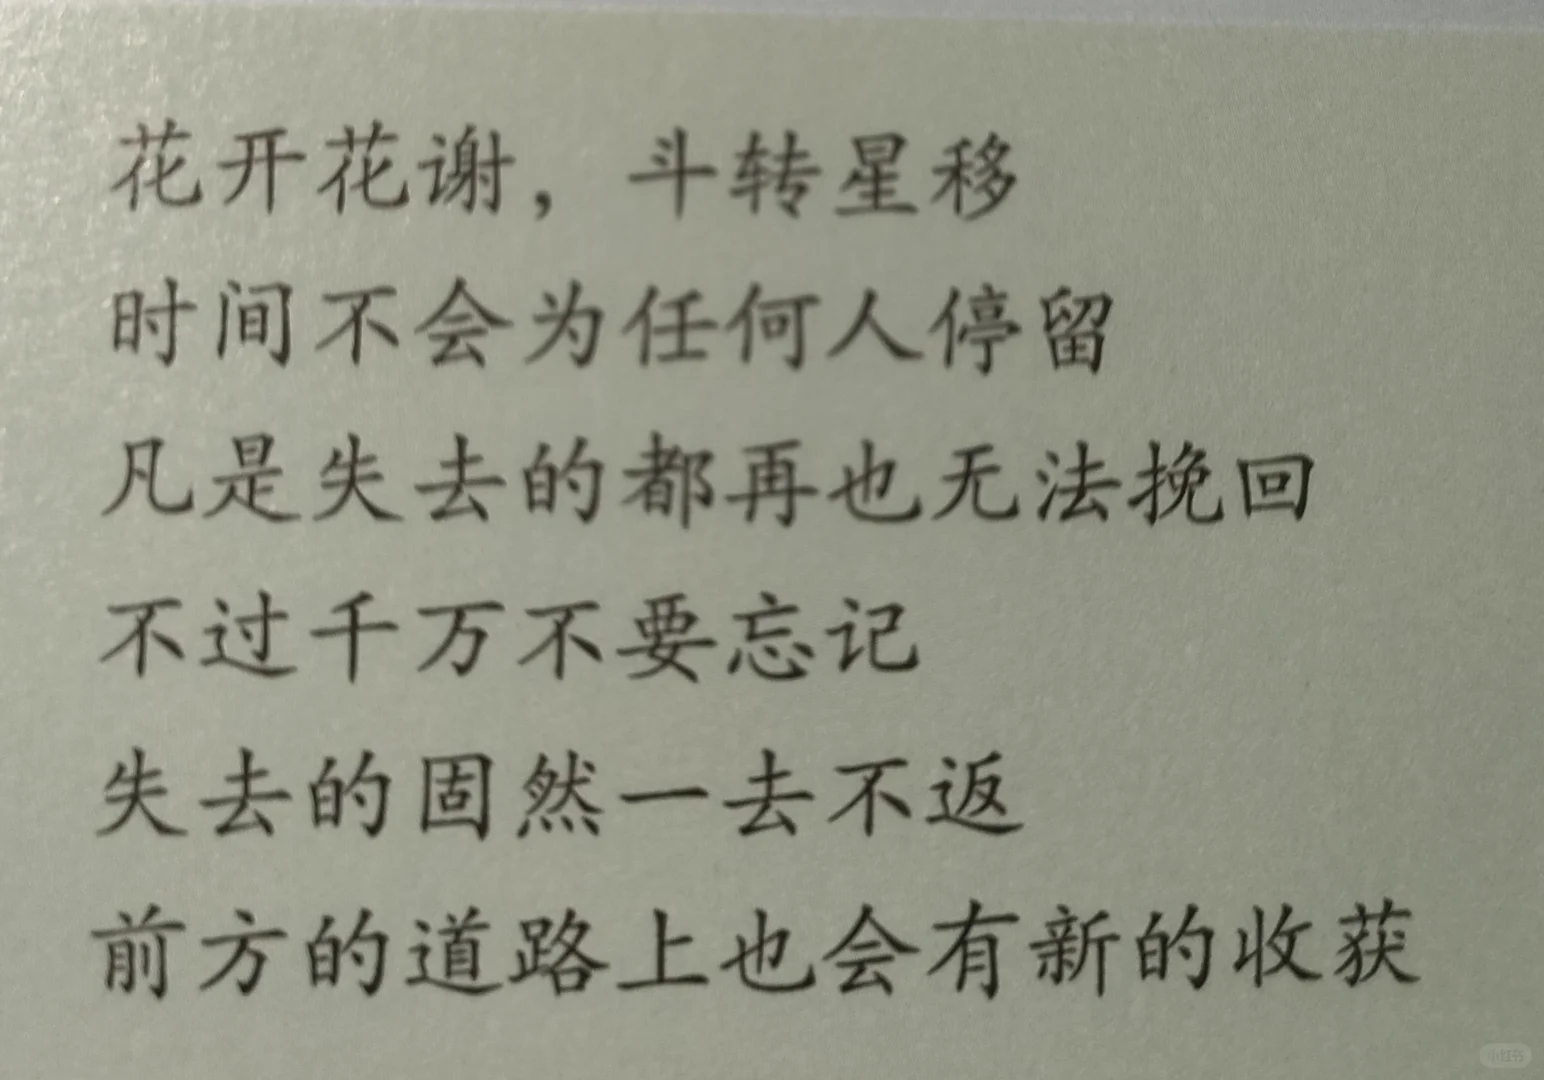 花开花谢，斗转星移
时间不会为任何人停留
凡是失去的都再也无法挽回
不过千万不要忘记
失去的固然一去不返
前方的道路上也会有新的收获
小红书